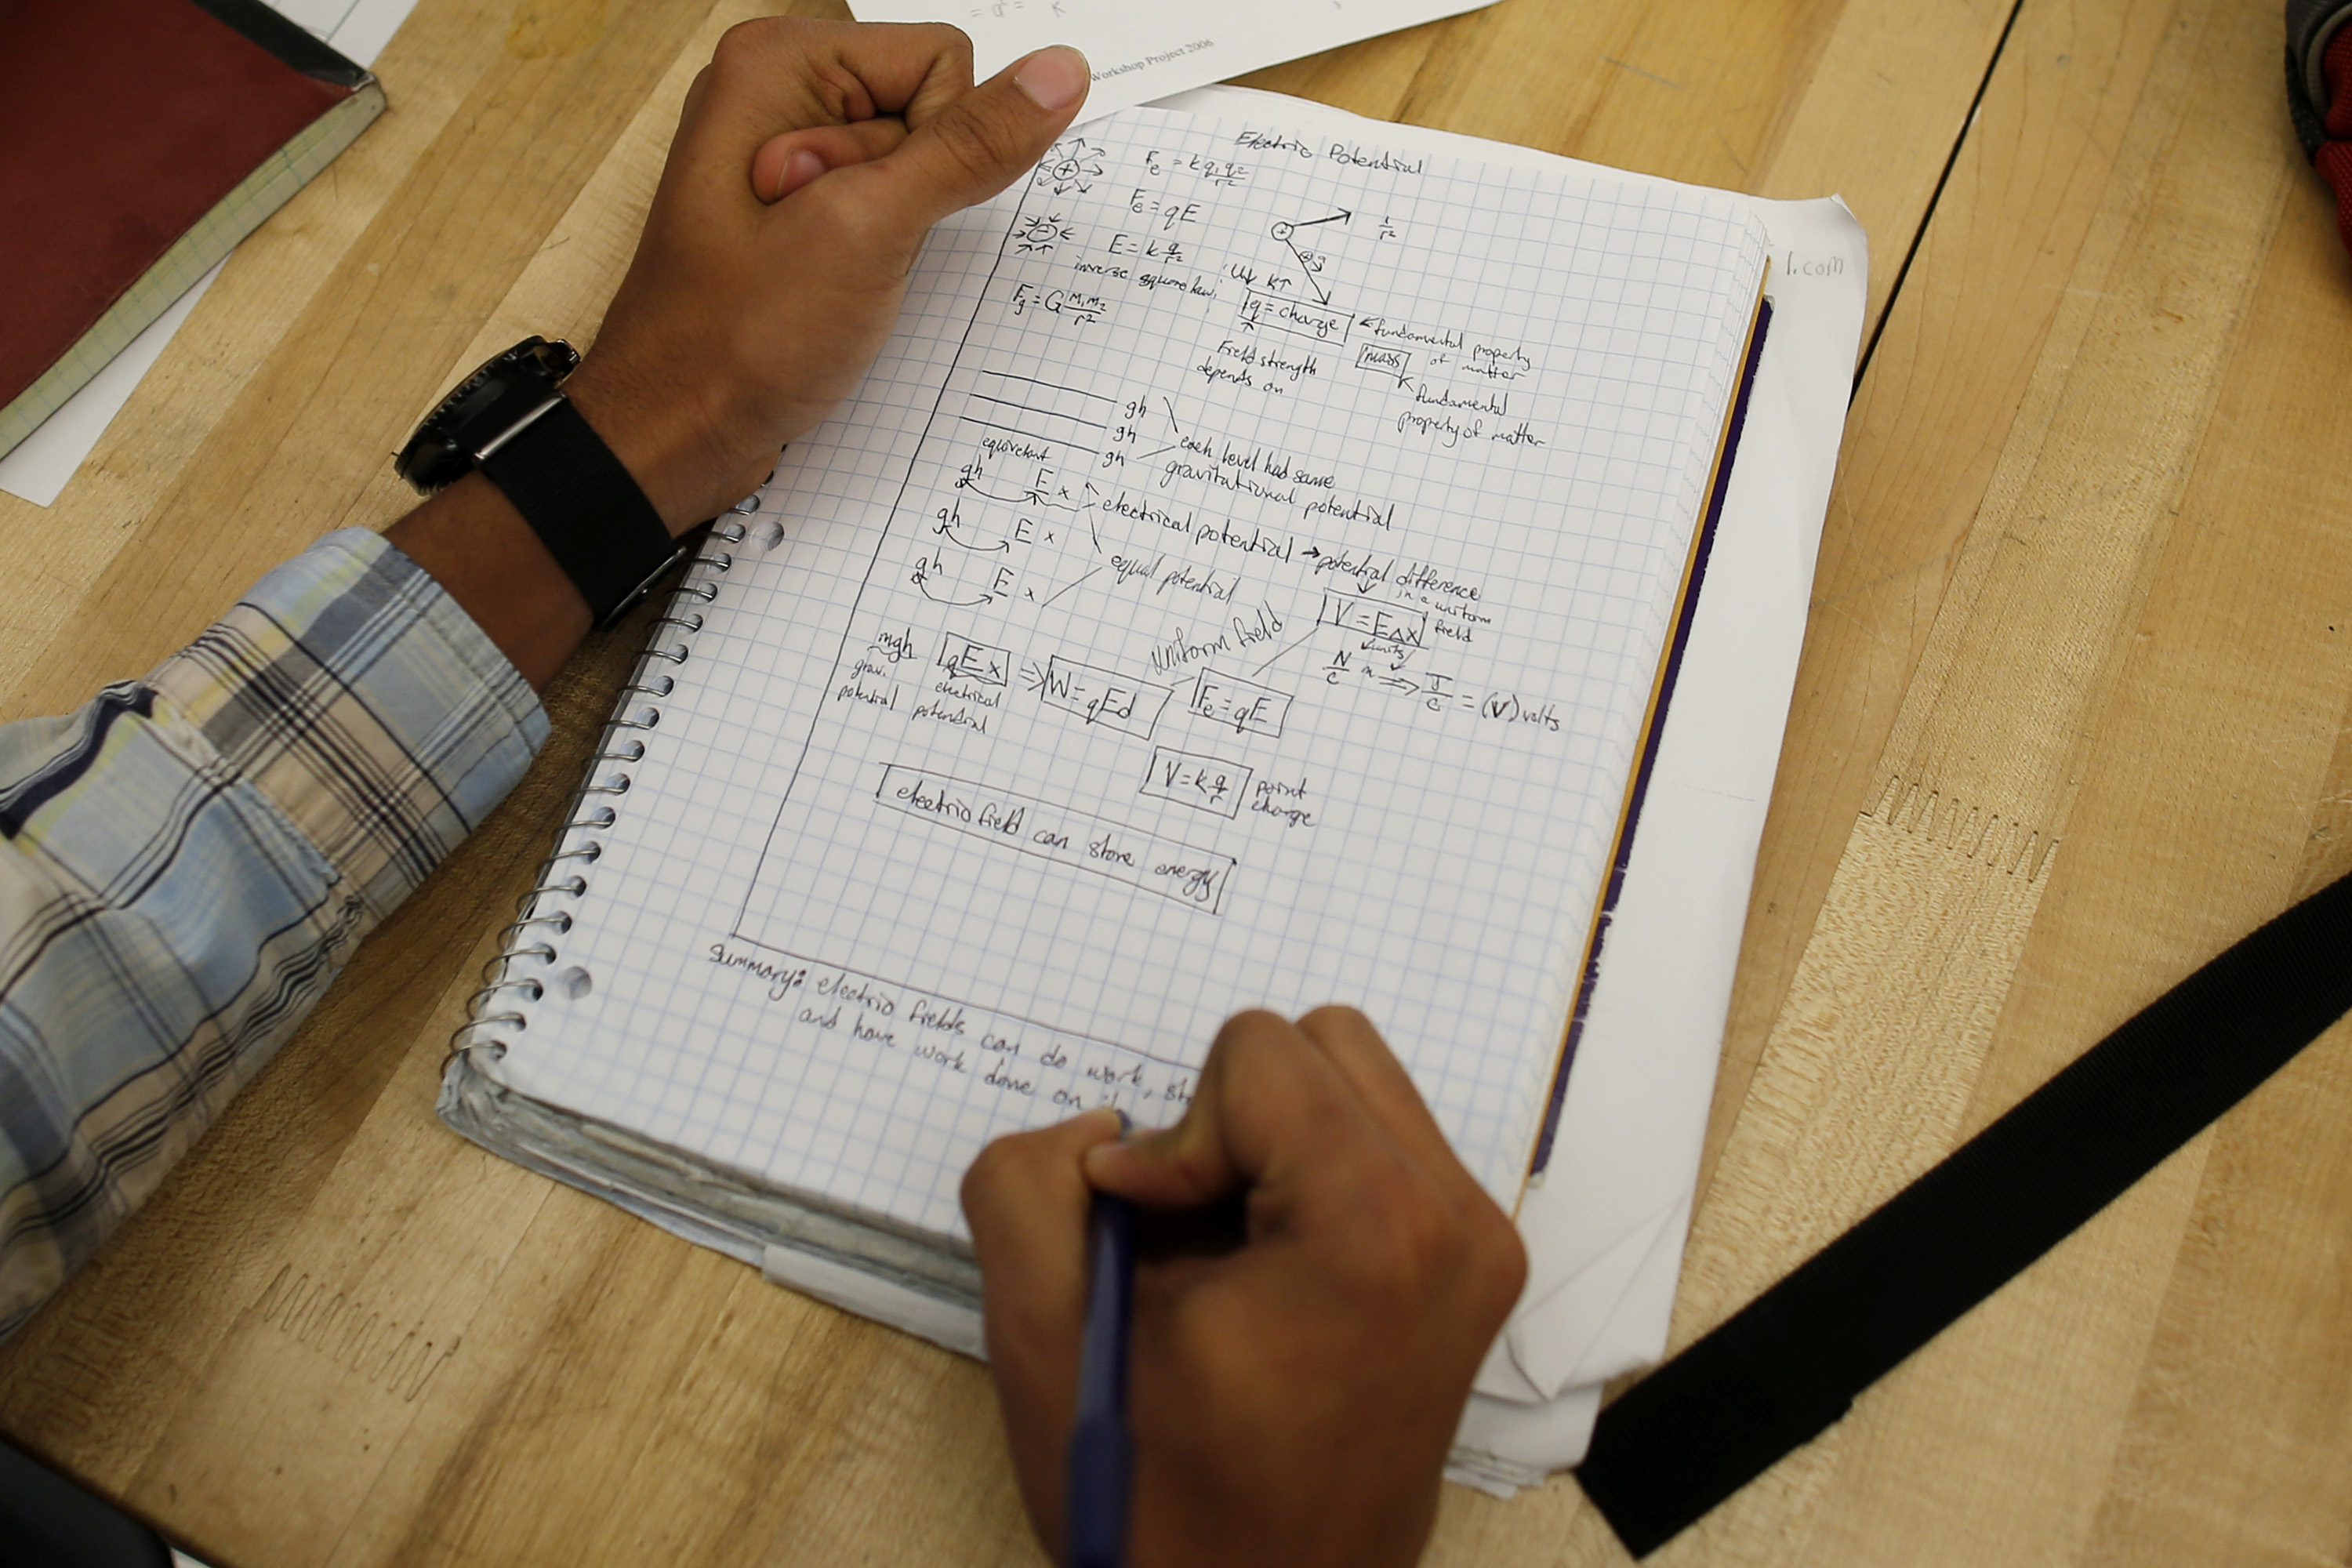 = q² = K
Workshop Project 2006
Electric Potential
+
Fe = k q₁q₂/r²
Fe = qE
+
1/r²
E = k q/r²
inverse square law
U↓ K↑
Fg = G m₁m₂/r²
q = charge
←fundamental property
of matter
mass
Field strength
depends on
fundamental
property of matter
gh
gh
gh
each level had same
gravitational potential
equivelant
gh E x
electrical potential → potential difference
gh E x
equal potential
in a uniform
field
gh E x
V = EΔx
units
N/C m ⇒ J/C = (V) volts
uniform field
mgh
grav.
potential
qEx
electrical
potential
⇒ W = qEd
Fe = qE
V = k q/r
point
charge
electric field can store energy
summary: electric fields can do work,
and have work done on
1.com